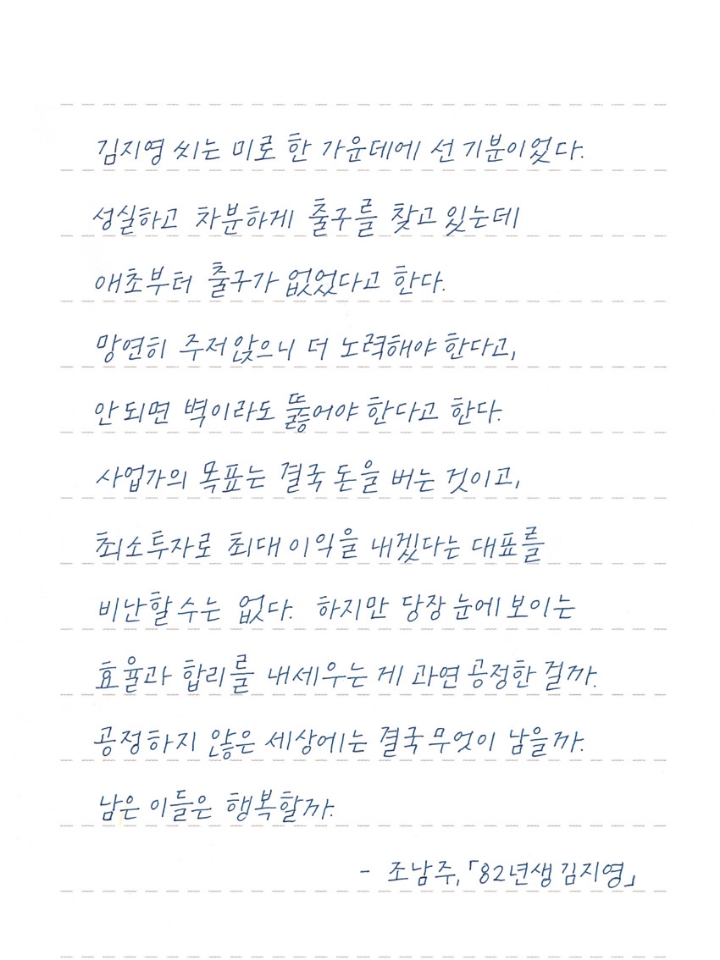 김지영 씨는 미로 한 가운데에 선 기분이었다.
성실하고 차분하게 출구를 찾고 있는데
애초부터 출구가 없었다고 한다.
망연히 주저앉으니 더 노력해야 한다고,
안되면 벽이라도 뚫어야 한다고 한다.
사업가의 목표는 결국 돈을 버는 것이고,
최소투자로 최대 이익을 내겠다는 대표를
비난할 수는 없다. 하지만 당장 눈에 보이는
효율과 합리를 내세우는 게 과연 공정한 걸까.
공정하지 않은 세상에는 결국 무엇이 남을까.
남은 이들은 행복할까.
- 조남주,「82년생 김지영」